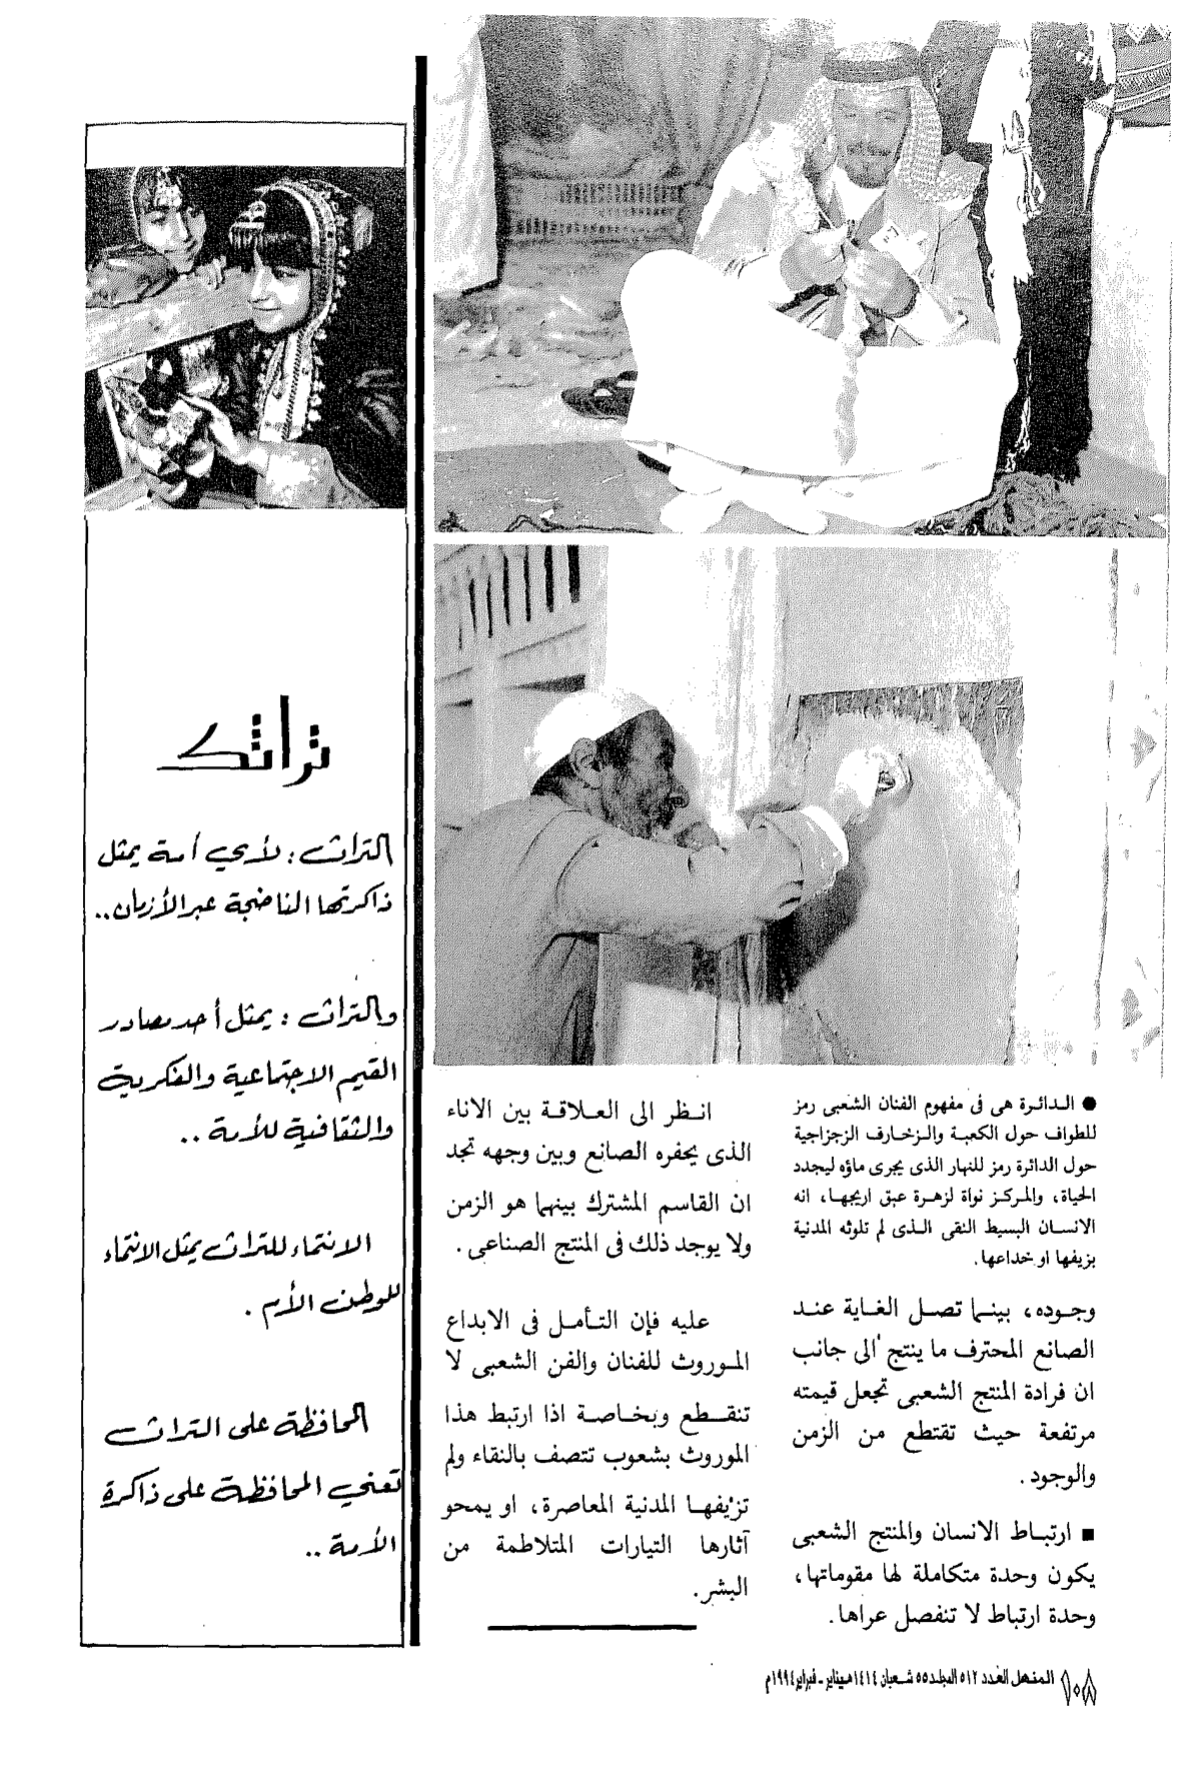 ● الـدائـرة هى فى مفهوم الفنان الشعبى رمز
للطواف حول الكعبة والـزخـارف الزجزاجية
حول الدائرة رمز للنهار الذى يجرى ماؤه ليجدد
الحياة، والمركـز نواة لزهـرة عبق اريجهـا، انه
الانسـان البسيط النقى الـذى لم تلوثه المدنية
بزيفها او خداعها.
وجـوده، بينـما تصـل الغـاية عنـد
الصانع المحترف ما ينتج الى جانب
ان فرادة المنتج الشعبى تجعل قيمته
مرتفعة حيث تقتطع من الزمن
والوجود.
■ ارتبـاط الانسان والمنتج الشعبى
يكون وحدة متكاملة لها مقوماتها،
وحدة ارتباط لا تنفصل عراها.
انـظر الى العـلاقـة بين الاناء
الذى يحفره الصانع وبين وجهه تجد
ان القاسم المشترك بينهما هو الزمن
ولا يوجد ذلك فى المنتج الصناعى.
عليه فإن التـأمـل فى الابداع
المـوروث للفنان والفن الشعبى لا
تنقـطع وبخـاصـة اذا ارتبط هذا
الموروث بشعوب تتصف بالنقاء ولم
تزيفهـا المدنية المعاصرة، او يمحو
آثارها التيارات المتلاطمة من
البشر.
تراثك
التراث: لأي أمة يمثل
ذاكرتها الناضجة عبر الأزمان..
والتراث: يمثل أحد مصادر
القيم الاجتماعية والفكرية
والثقافية للأمة ..
الانتماء للتراث يمثل الانتماء
للوطن الأم .
المحافظة على التراث
تعني المحافظة على ذاكرة
الأمة ..
١٠٨ المنهل العدد ٥١٢ المجلد ٥٥ شعبان ١٤١٤هـ يناير ـ فبراير ١٩٩٤م